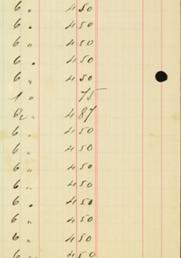 6 " 4 50
6 " 4 50
6 " 4 50
6 " 4 50
6 " 4 50
1 " 75
6½ " 4 87
6 " 4 50
6 " 4 50
6 " 4 50
6 " 4 50
6 " 4 50
6 " 4 50
6 " 4 50
6 " 4 50